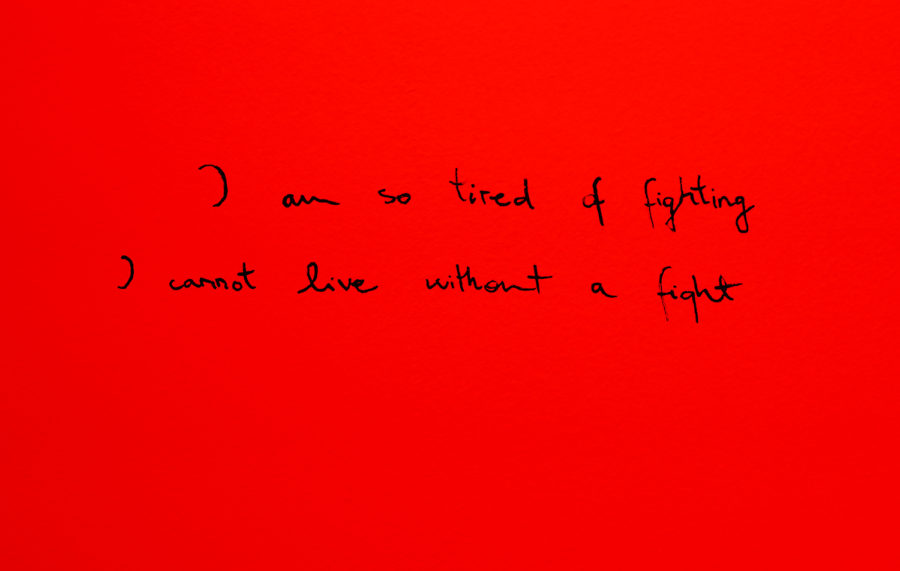 I am so tired of fighting
I cannot live without a fight